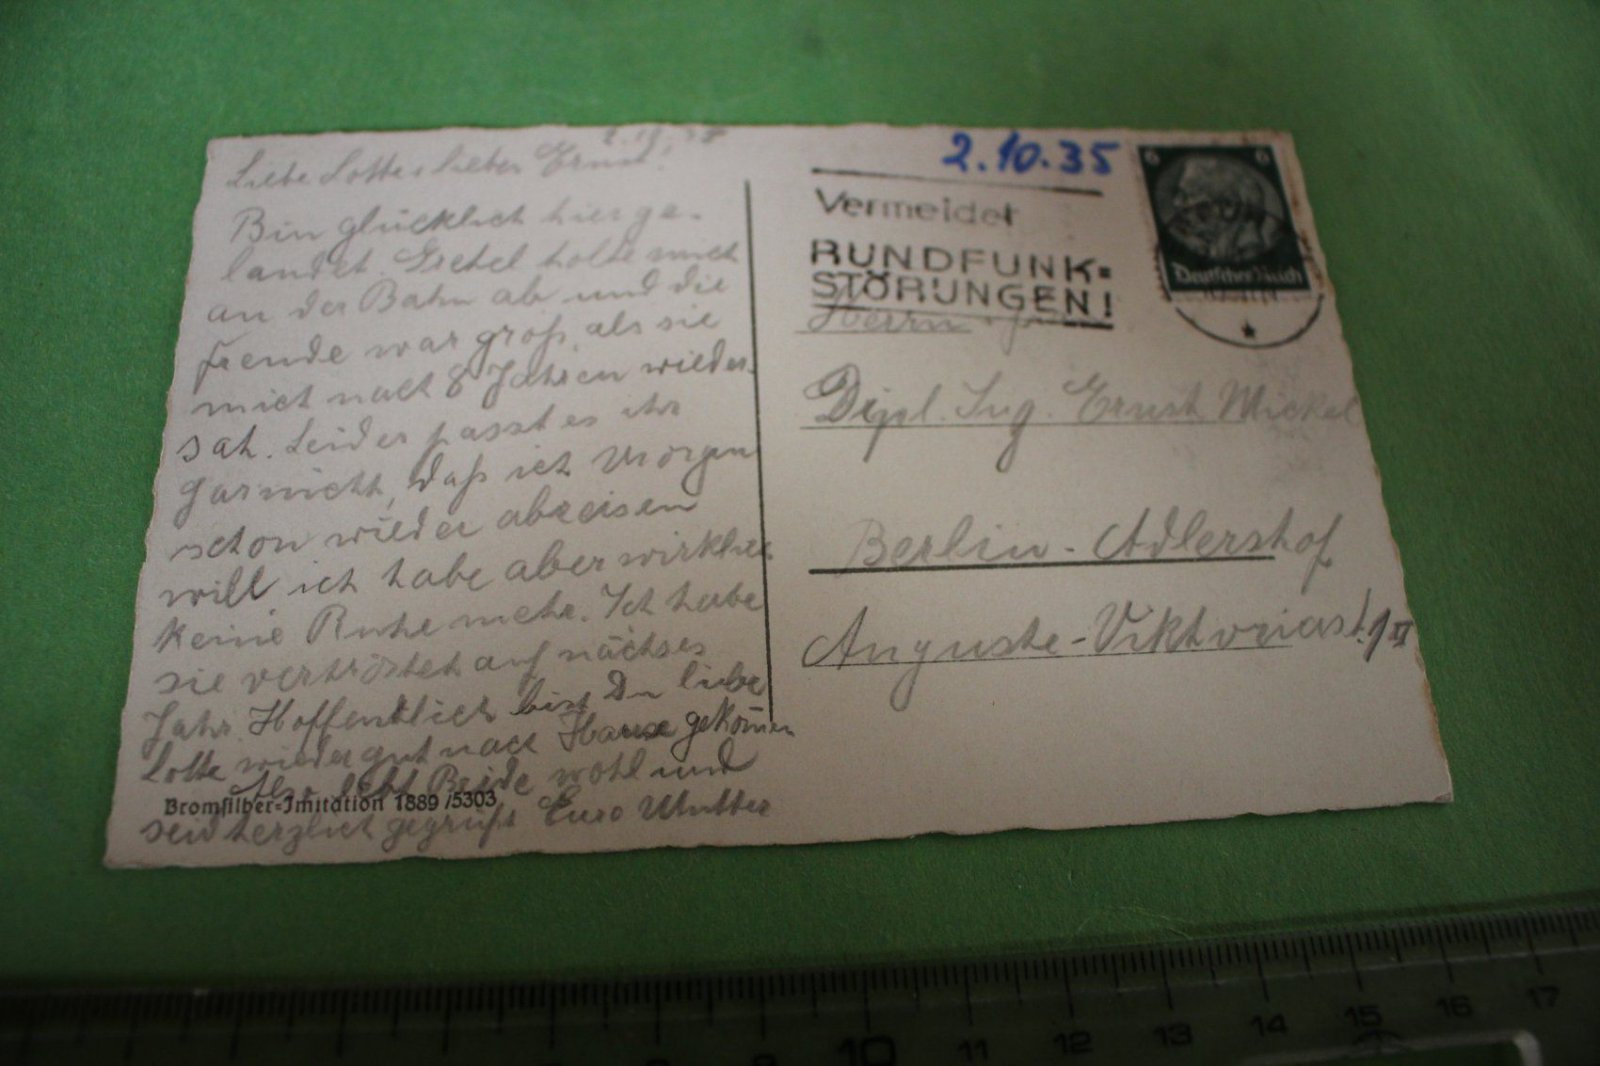 2.10.35
Liebe Lotte, lieber Ernst!
Bin glücklich hier ge-
landet. Gretel holte mich
an der Bahn ab und die
Freude war groß, als sie
mich nach 8 Jahren wieder
sah. Leider passt es ihr
garnicht, daß ich Morgen
schon wieder abreisen
will ich habe aber wirklich
keine Ruhe mehr. Ich habe
sie vertröstet auf nächstes
Jahr. Hoffentlich bist Du liebe
Lotte wieder gut nach Hause gekom̄en
Also lebt Beide wohl und
seid herzlich gegrüßt Eure Mutter
Bromsilber-Imitation 1889/5303
2.10.35
Vermeidet
RUNDFUNK-
STÖRUNGEN!
6 6
Deutsches Reich
Herrn
Dipl. Ing. Ernst Mickel
Berlin-Adlershof
Auguste-Viktoriast. 1 II
10 11 12 13 14 15 16 17